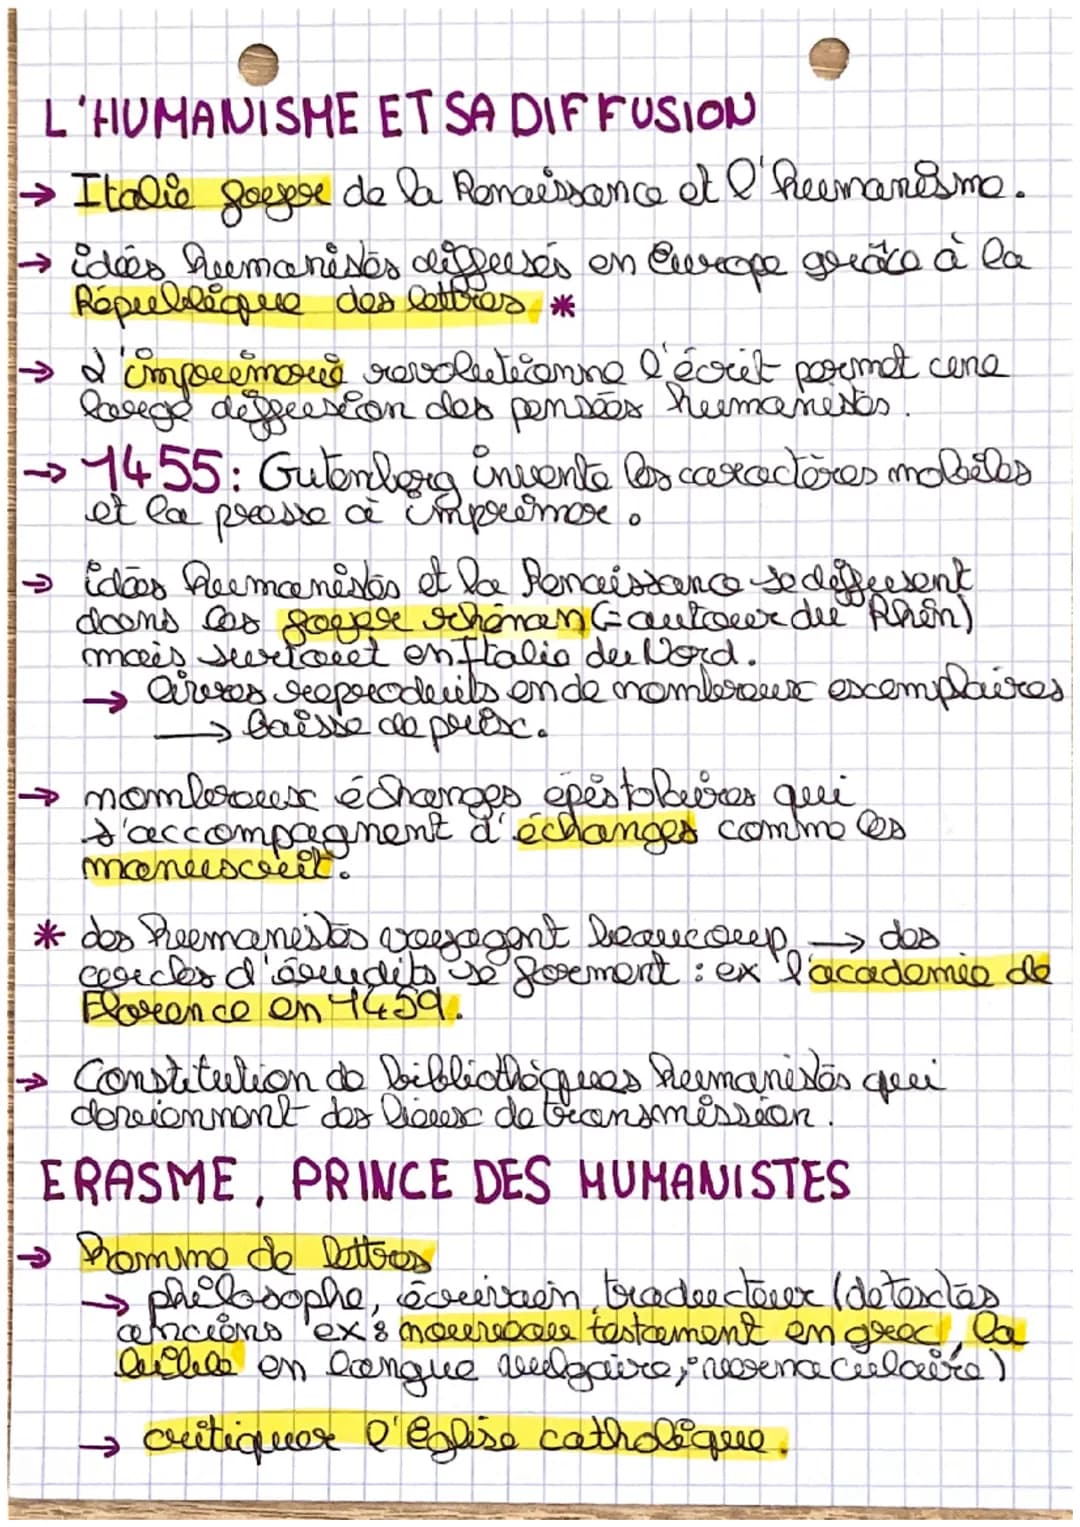 L'HUMANISME ET SA DIFFUSION
→ Italie foyer de la Renaissance et l'humanisme.
→ idées humanistes diffusés en Europe grâce à la
République des lettres *
→ L'imprimerie revolutionne l'écrit permet une
large diffusion des pensées humanistes.
→ 1455: Gutenberg invente les caractères mobiles
et la presse à imprimer.
→ idées humanistes et la Renaissance se diffusent
dans les foyer rhénan (= autour du Rhin)
mais surtout en Italie du Nord.
→ livres reproduits en de nombreux exemplaires
→ baisse de prix.
→ nombreux échanges épistolaires qui
s'accompagnent d'échanges comme les
manuscrit.
* des humanistes voyagent beaucoup → des
cercles d'érudits se forment : ex l'academie de
Florence en 1459.
→ Constitution de bibliothèques humanistes qui
deviennent des lieux de transmission.
ERASME, PRINCE DES HUMANISTES
→ homme de lettres
→ philosophe, écrivain, traducteur (de textes
anciens ex: nouveau testament en grec, la
bible en langue vulgaire, vernaculaire)
→ critiquer l'Eglise catholique.